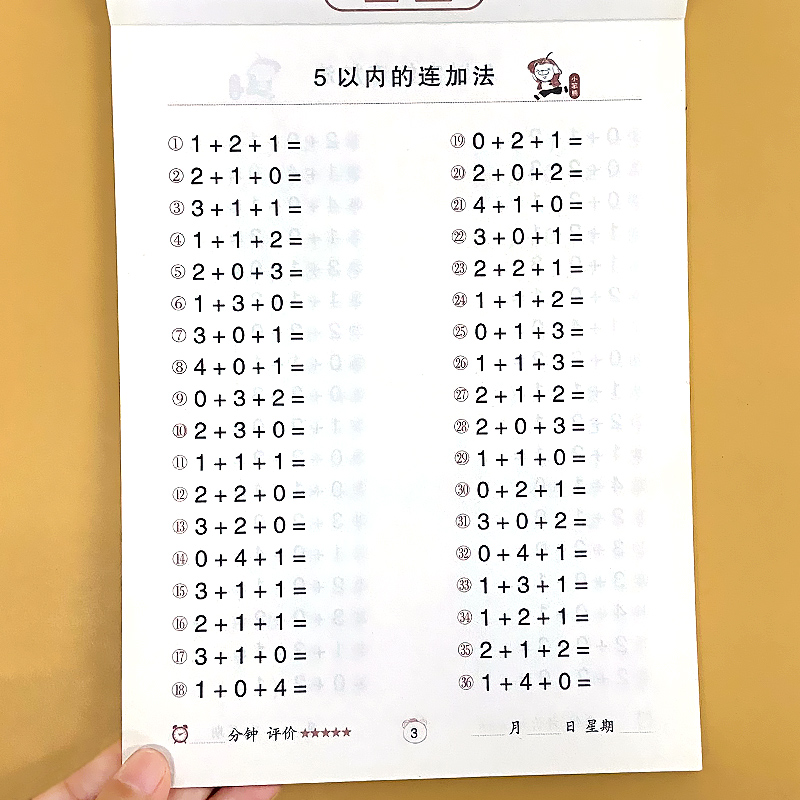 5以内的连加法
① 1+2+1=
② 2+1+0=
③ 3+1+1=
④ 1+1+2=
⑤ 2+0+3=
⑥ 1+3+0=
⑦ 3+0+1=
⑧ 4+0+1=
⑨ 0+3+2=
⑩ 2+3+0=
⑪ 1+1+1=
⑫ 2+2+0=
⑬ 3+2+0=
⑭ 0+4+1=
⑮ 3+1+1=
⑯ 2+1+1=
⑰ 3+1+0=
⑱ 1+0+4=
⑲ 0+2+1=
⑳ 2+0+2=
㉑ 4+1+0=
㉒ 3+0+1=
㉓ 2+2+1=
㉔ 1+1+2=
㉕ 0+1+3=
㉖ 1+1+3=
㉗ 2+1+2=
㉘ 2+0+3=
㉙ 1+1+0=
㉚ 0+2+1=
㉛ 3+0+2=
㉜ 0+4+1=
㉝ 1+3+1=
㉞ 1+2+1=
㉟ 2+1+2=
㊱ 1+4+0=
分钟 评价★★★★★ 3 月 日 星期